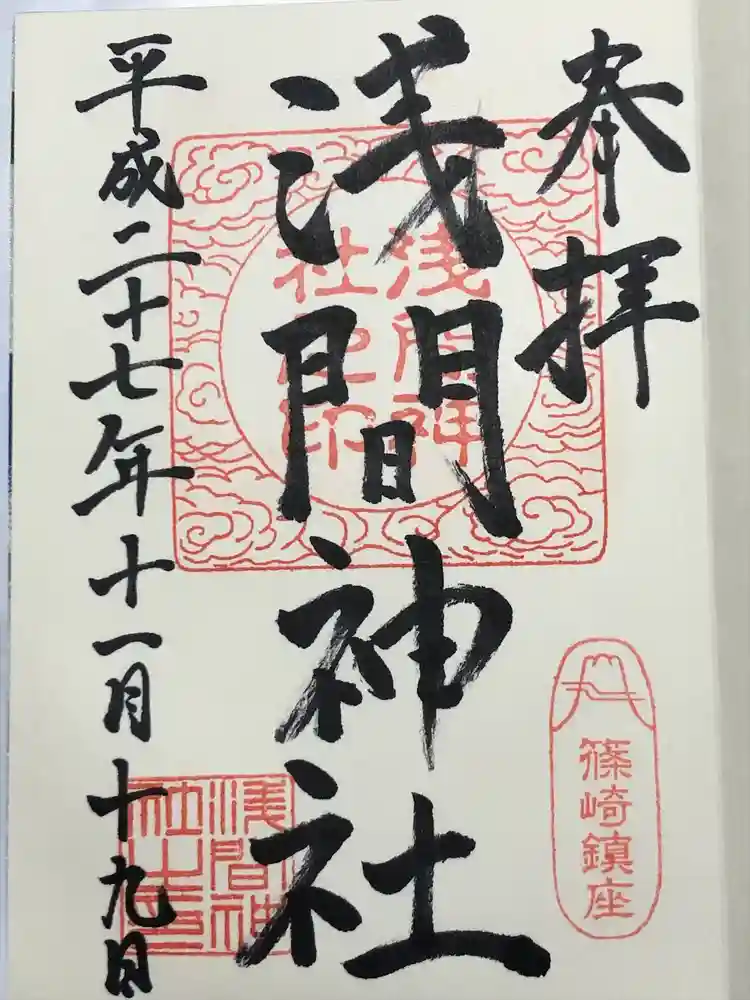 奉拝
篠崎鎮座
浅間神社
浅間神
社之印
平成二十七年十一月十九日
浅間神
社之